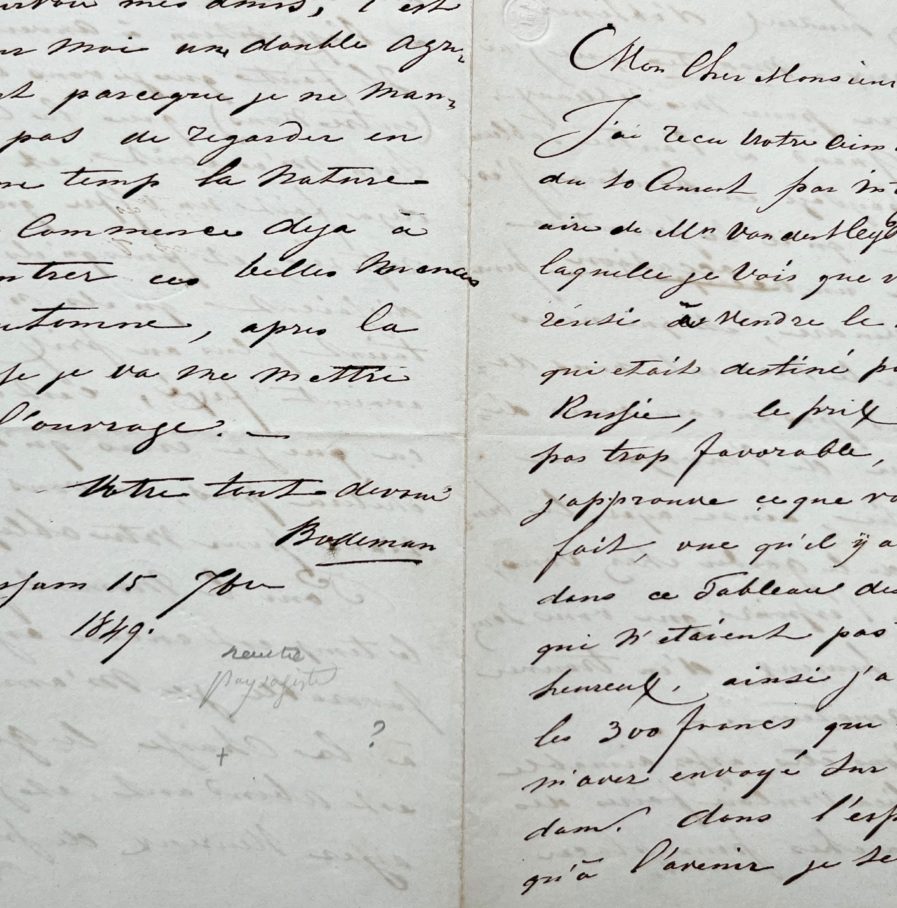 mes amis, c'est
moi un double agré-
parceque je ne man-
pas de regarder en
temp la nature
Commence deja à
ntrer ces belles Nuences
utomne, apres la
je va me mettre
l'ouvrage. —
Votre tout devoué
Bodeman
15 7bre
1849.
paysagiste
?
+
Mon Cher Monsieur
J'ai recu votre aim
du 10 Courant par int
aire de Mr van der Hey
laquelle je vois que v
réusi à vendre le
qui etait destiné p
Russie, le prix
pas trop favorable,
j'approuve ce que vo
fait, vue qu'il y a
dans ce Tableau des
qui n'etaient pas
heureux, ainsi j'a
les 300 francs que
m'avez envoyé sur
dam. dans l'esp
qu'à l'avenir je se